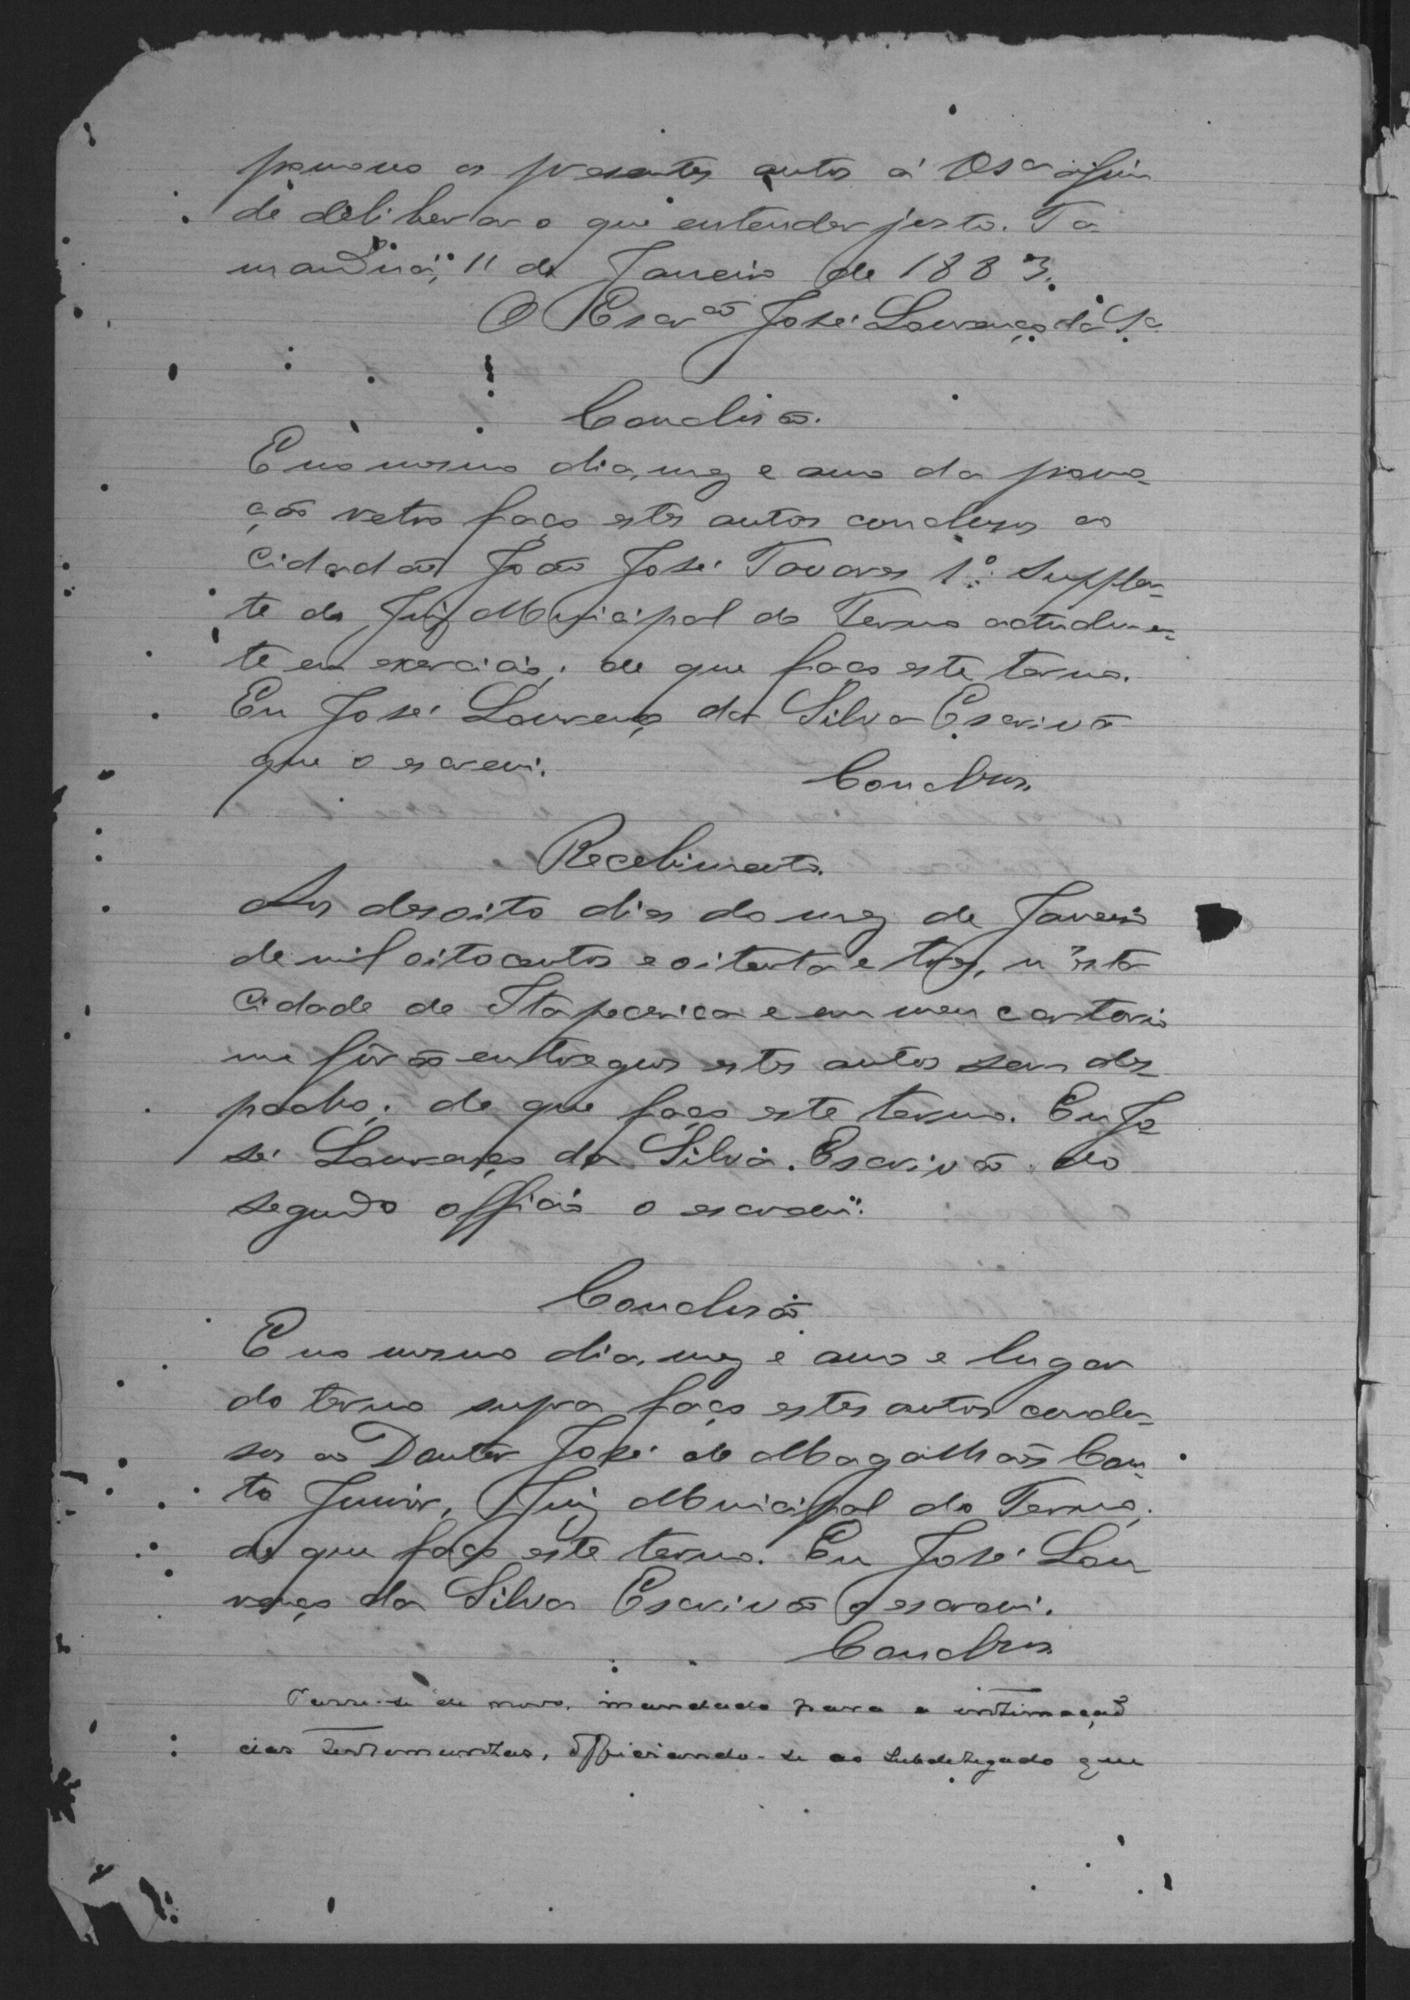 passo os presentes autos á V.S.ª afim
de deliberar o que entender justo. Ta
manduá, 11 de Janeiro de 1883.
O Escr.ão José Lourenço da S.ª
Conclusão.
E no mesmo dia, mez e anno da
ção retro faço estes autos conclusos ao
Cidadão João José Tavares 1º Supplen-
te do Juiz Municipal do Termo actualmen-
te em exercicio; de que faço este termo.
Eu José Lourenço da Silva Escrivão
que o escrevi.
Conclusos
Recebimento.
Aos desoito dias do mez de Janeiro
de mil oitocentos e oitenta e tres, n'esta
Cidade de Itapecerica e em meu cartorio
me fôrão entregues estes autos sem des-
pacho; de que faço este termo. Eu Jo-
sé Lourenço da Silva. Escrivão do
segundo officio o escrevi.
Conclusão
E no mesmo dia, mez e anno e lugar
do termo supra faço estes autos conclu-
sos ao Doutor José de Magalhães Cou-
to Junior, Juiz Municipal do Termo;
de que faço este termo. Eu José Lou
renço da Silva Escrivão o escrevi.
Conclusos
Passe-se de novo mandado para a intimação
das testemunhas, officiando-se ao subdelegado que